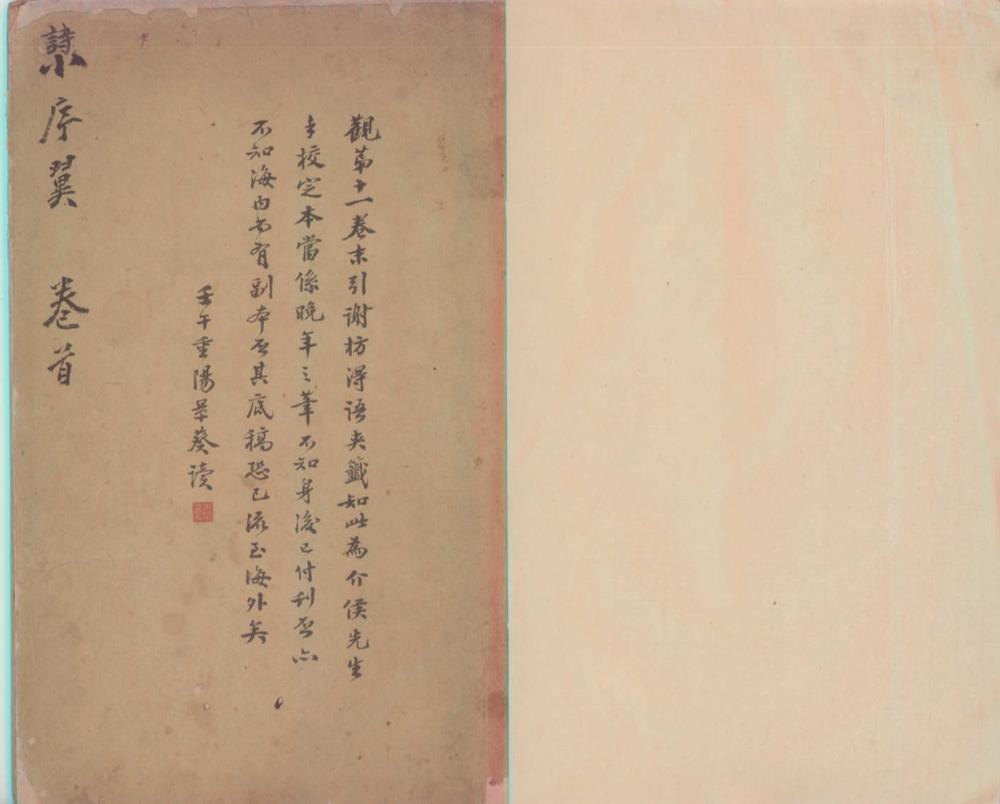 觀第十一卷末引謝枋得语夹籤知此為介侯先生
手校定本當係晚年之筆不知身後已付刊否亦
不知海内尚有副本否其底稿恐已流至海外矣
壬午重陽景葵读
詩小序翼 卷首